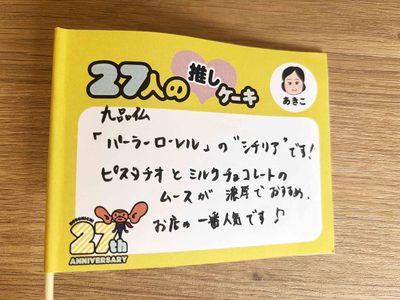 27人の推しケーキ
あきこ
九品仏
「パーラーローレル」の"シチリア"です!
ピスタチオとミルクチョコレートの
ムースが濃厚でおすすめ、
お店の一番人気です♪
27th
ANNIVERSARY